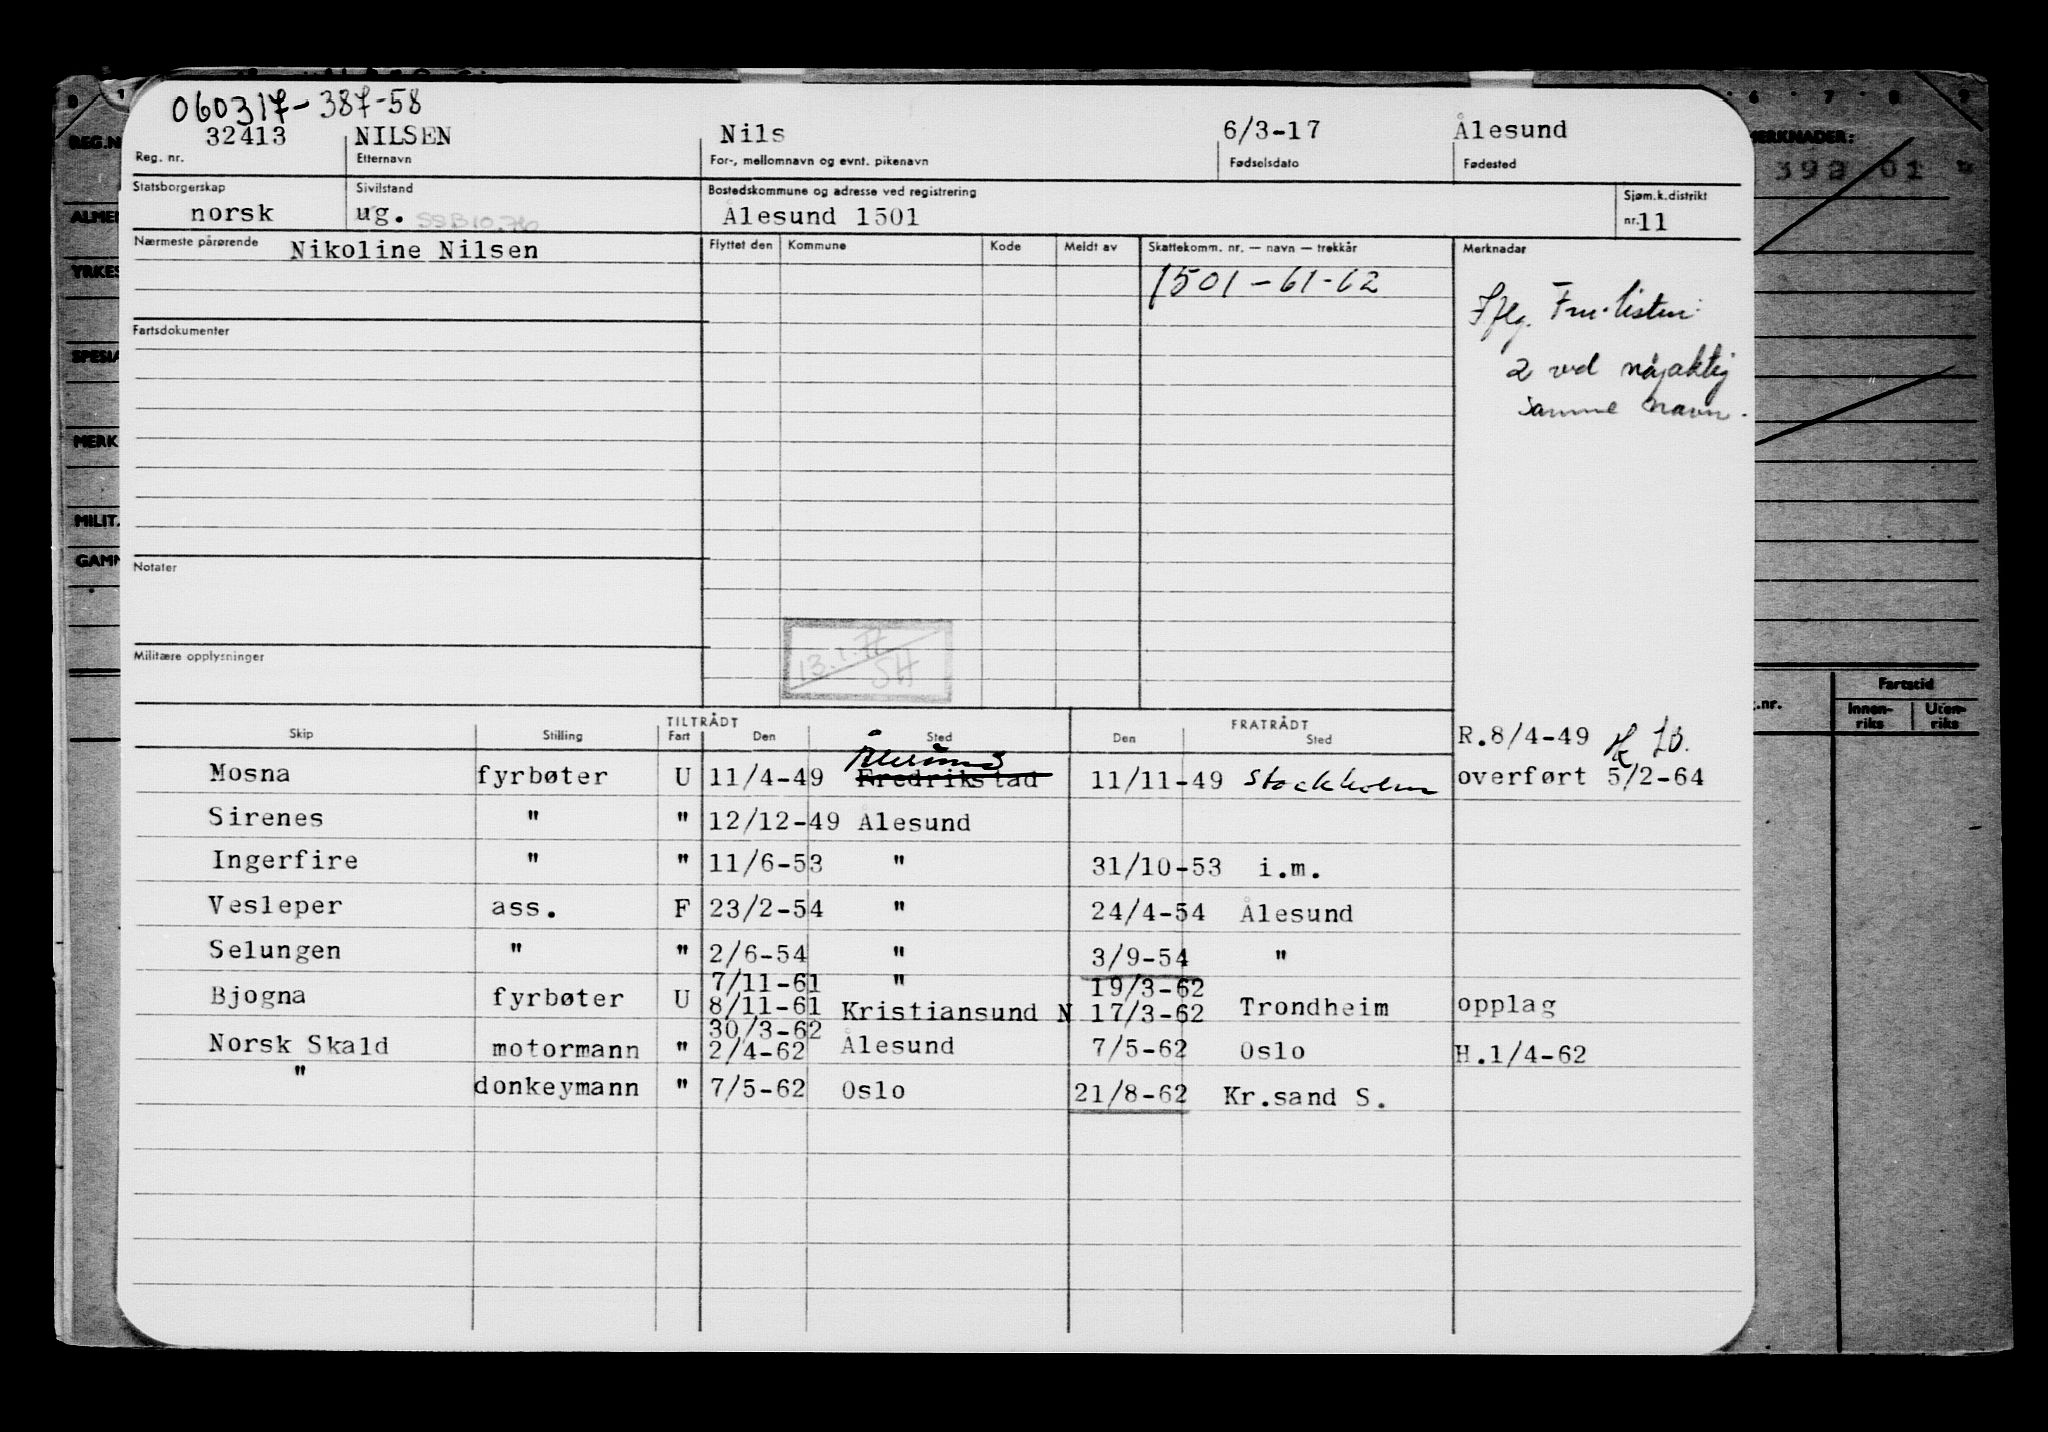 060317-387-58
32413 NILSEN Nils 6/3-17 Ålesund
Reg. nr. Etternavn For-, mellomnavn og evnt. pikenavn Fødselsdato Fødested
Statsborgerskap Sivilstand Bostedskommune og adresse ved registrering Sjøm.k.distrikt
norsk ug. Ålesund 1501 nr. 11
Nærmeste pårørende Nikoline Nilsen Flyttet den Kommune Kode Meldt av Skattekomm. nr. — navn — trekkår Merknadar
1501-61-62
Iflg. Fm.listen:
2 ved nøyaktig
samme navn.
Fartsdokumenter
Notater
13.1.
SH
Militære opplysninger
TILTRÅDT FRATRÅDT
Skip Stilling Fart Den Sted Den Sted
R.8/4-49
Ålesund
Mosna fyrbøter U 11/4-49 Fredrikstad 11/11-49 Stockholm overført 5/2-64
Sirenes " " 12/12-49 Ålesund
Ingerfire " " 11/6-53 " 31/10-53 i.m.
Vesleper ass. F 23/2-54 " 24/4-54 Ålesund
Selungen " " 2/6-54 " 3/9-54 "
7/11-61 " 19/3-62
Bjogna fyrbøter U 8/11-61 Kristiansund N 17/3-62 Trondheim opplag
30/3-62
Norsk Skald motormann " 2/4-62 Ålesund 7/5-62 Oslo H.1/4-62
" donkeymann " 7/5-62 Oslo 21/8-62 Kr.sand S.
REG.N
ALME
YRKES
SPESIA
MERK
MILIT.
GAMM
6 7 8 9
MERKNADER:
393 01
.nr. Fartstid
Innen-
riks
Uten-
riks